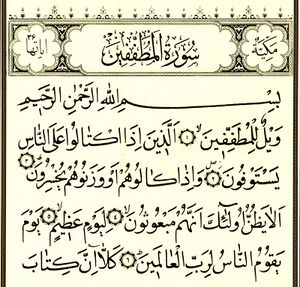 مكية سورة المطففين آياتها ٣٦
بسم الله الرحمن الرحيم
وَيْلٌ لِلْمُطَفِّفِينَ ﴿١﴾ الَّذِينَ إِذَا اكْتَالُوا عَلَى النَّاسِ
يَسْتَوْفُونَ ﴿٢﴾ وَإِذَا كَالُوهُمْ أَوْ وَزَنُوهُمْ يُخْسِرُونَ ﴿٣﴾
أَلَا يَظُنُّ أُولَٰئِكَ أَنَّهُمْ مَبْعُوثُونَ ﴿٤﴾ لِيَوْمٍ عَظِيمٍ ﴿٥﴾ يَوْمَ
يَقُومُ النَّاسُ لِرَبِّ الْعَالَمِينَ ﴿٦﴾ كَلَّا إِنَّ كِتَابَ